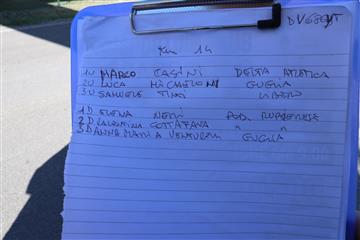 DVGBRT
Km 14
1U MARCO CASINI DELTA ATLETICA
2U LUCA MICHELONI GUGLIA
3U SAMUELE TINTI LIBERO
1D ELENA NERI POD. RUBIERESE
2D VALENTINA GOTTAFAVA " "
3D ANNA MARIA VENTURELLI GUGLIA